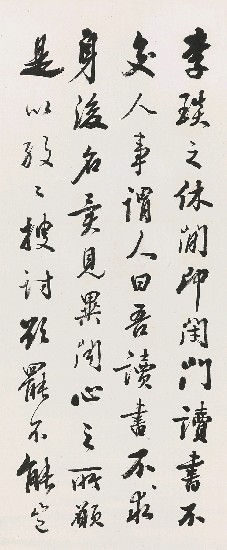 李琰之休閒即閉門讀書不
交人事謂人曰吾讀書不求
身後名異見異聞心之所願
是以孜孜搜討欲罷不能豈